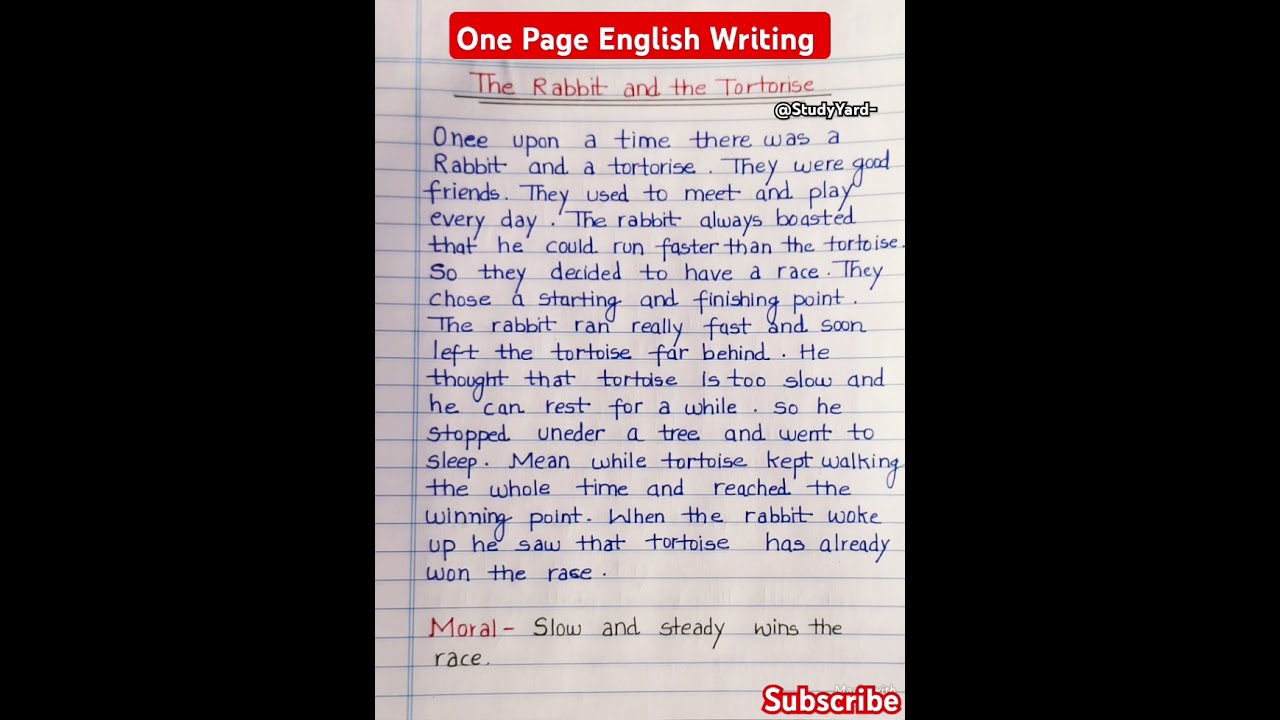 One Page English Writing
The Rabbit and the Tortorise
@StudyYard-
Onee upon a time there was a
Rabbit and a tortorise. They were good
friends. They used to meet and play
every day. The rabbit always boasted
that he could run faster than the tortoise.
So they decided to have a race. They
chose a starting and finishing point.
The rabbit ran really fast and soon
left the tortoise far behind. He
thought that tortoise is too slow and
he can rest for a while. So he
stopped uneder a tree and went to
sleep. Mean while tortoise kept walking
the whole time and reached the
winning point. When the rabbit woke
up he saw that tortoise has already
won the rase.
Moral- Slow and steady wins the
race.
Subscribe